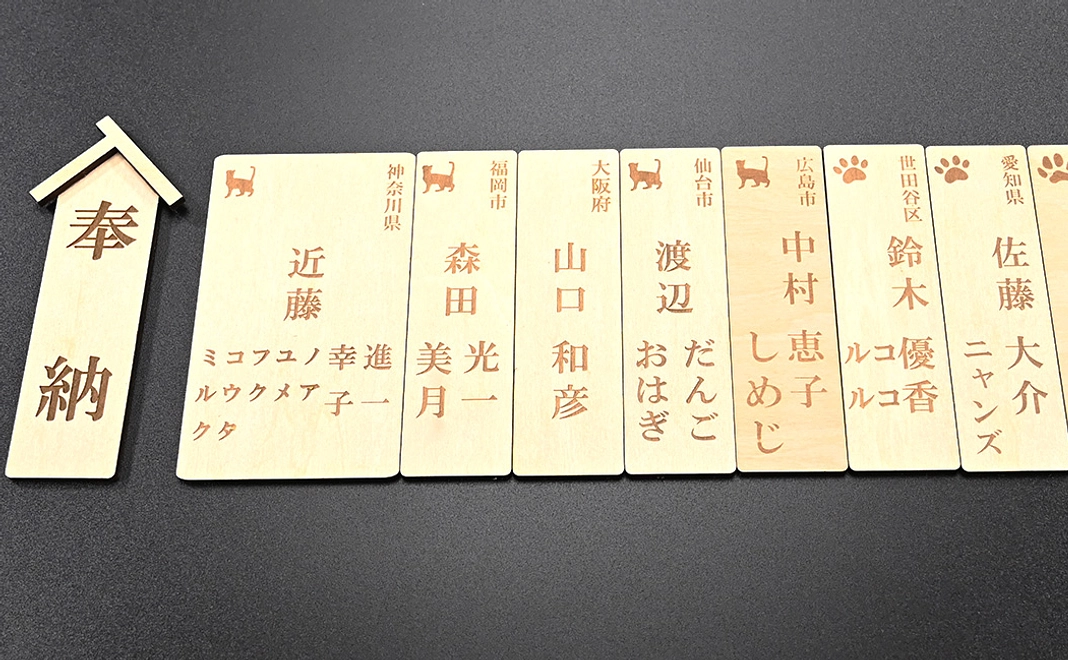 奉納
神奈川県
近藤
進一
幸子
ノア
ユメ
フク
コウタ
ミルク
福岡市
森田
光一
美月
大阪府
山口
和彦
仙台市
渡辺
だんご
おはぎ
広島市
中村
恵子
しめじ
世田谷区
鈴木
優香
ココ
ルル
愛知県
佐藤
大介
ニャンズ